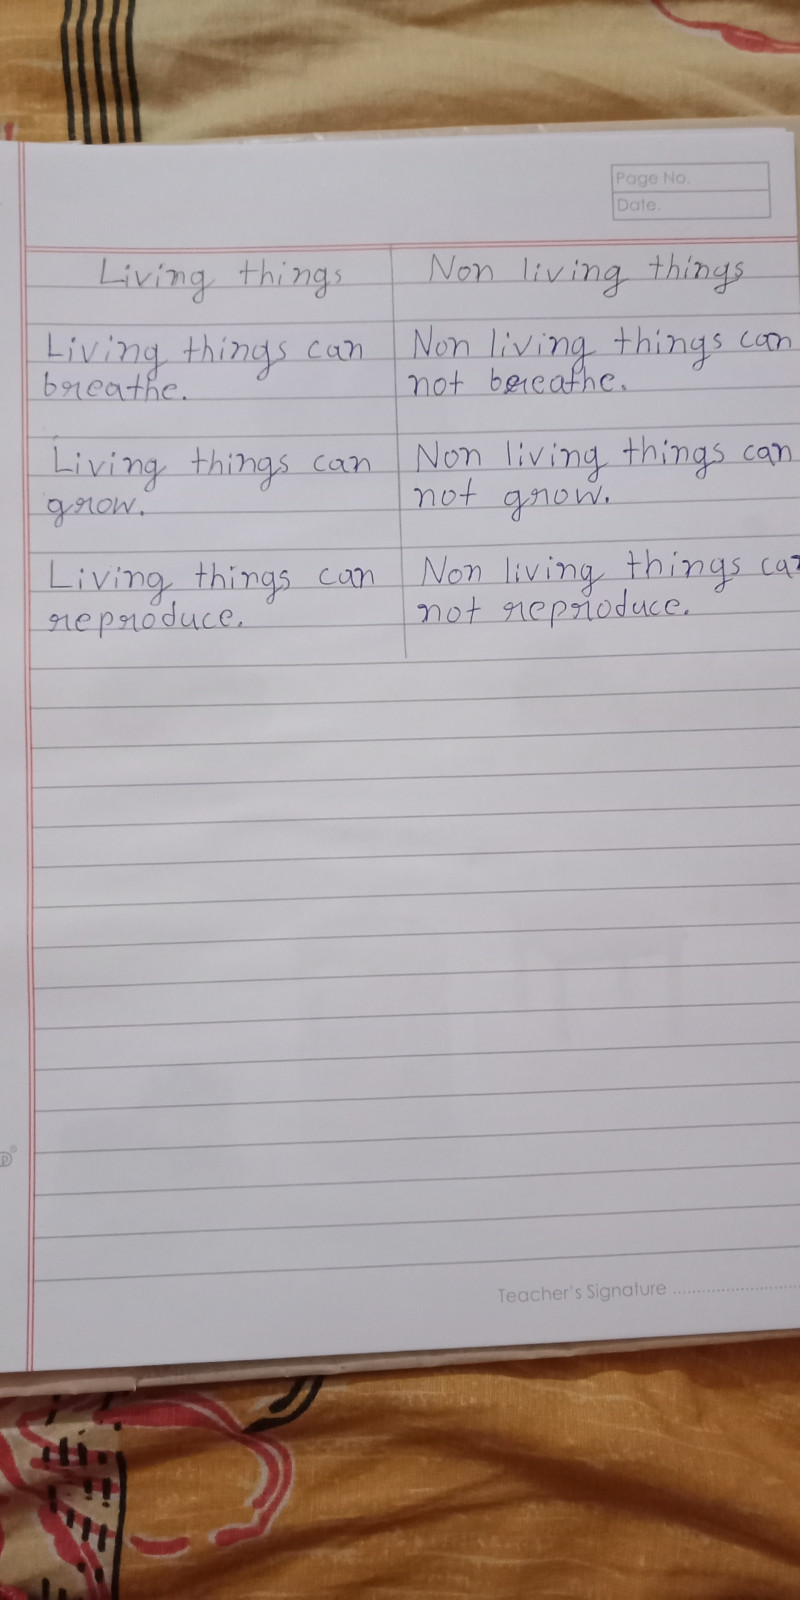 Page No.
Date.
Living things
Non living things
Living things can
breathe.
Non living things can
not breathe.
Living things can
grow.
Non living things can
not grow.
Living things can
reproduce.
Non living things can
not reproduce.
Teacher's Signature ..........................